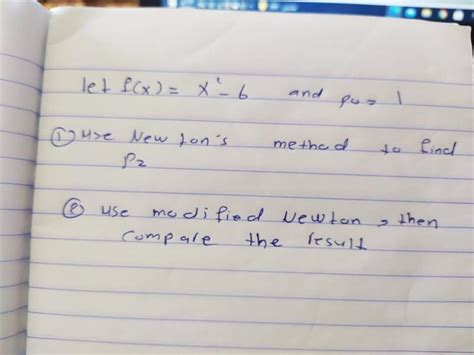 let f(x) = x² - 6 and p₀ = 1
① Use Newton's method to find
P₂
② use modified Newton, then
compare the result